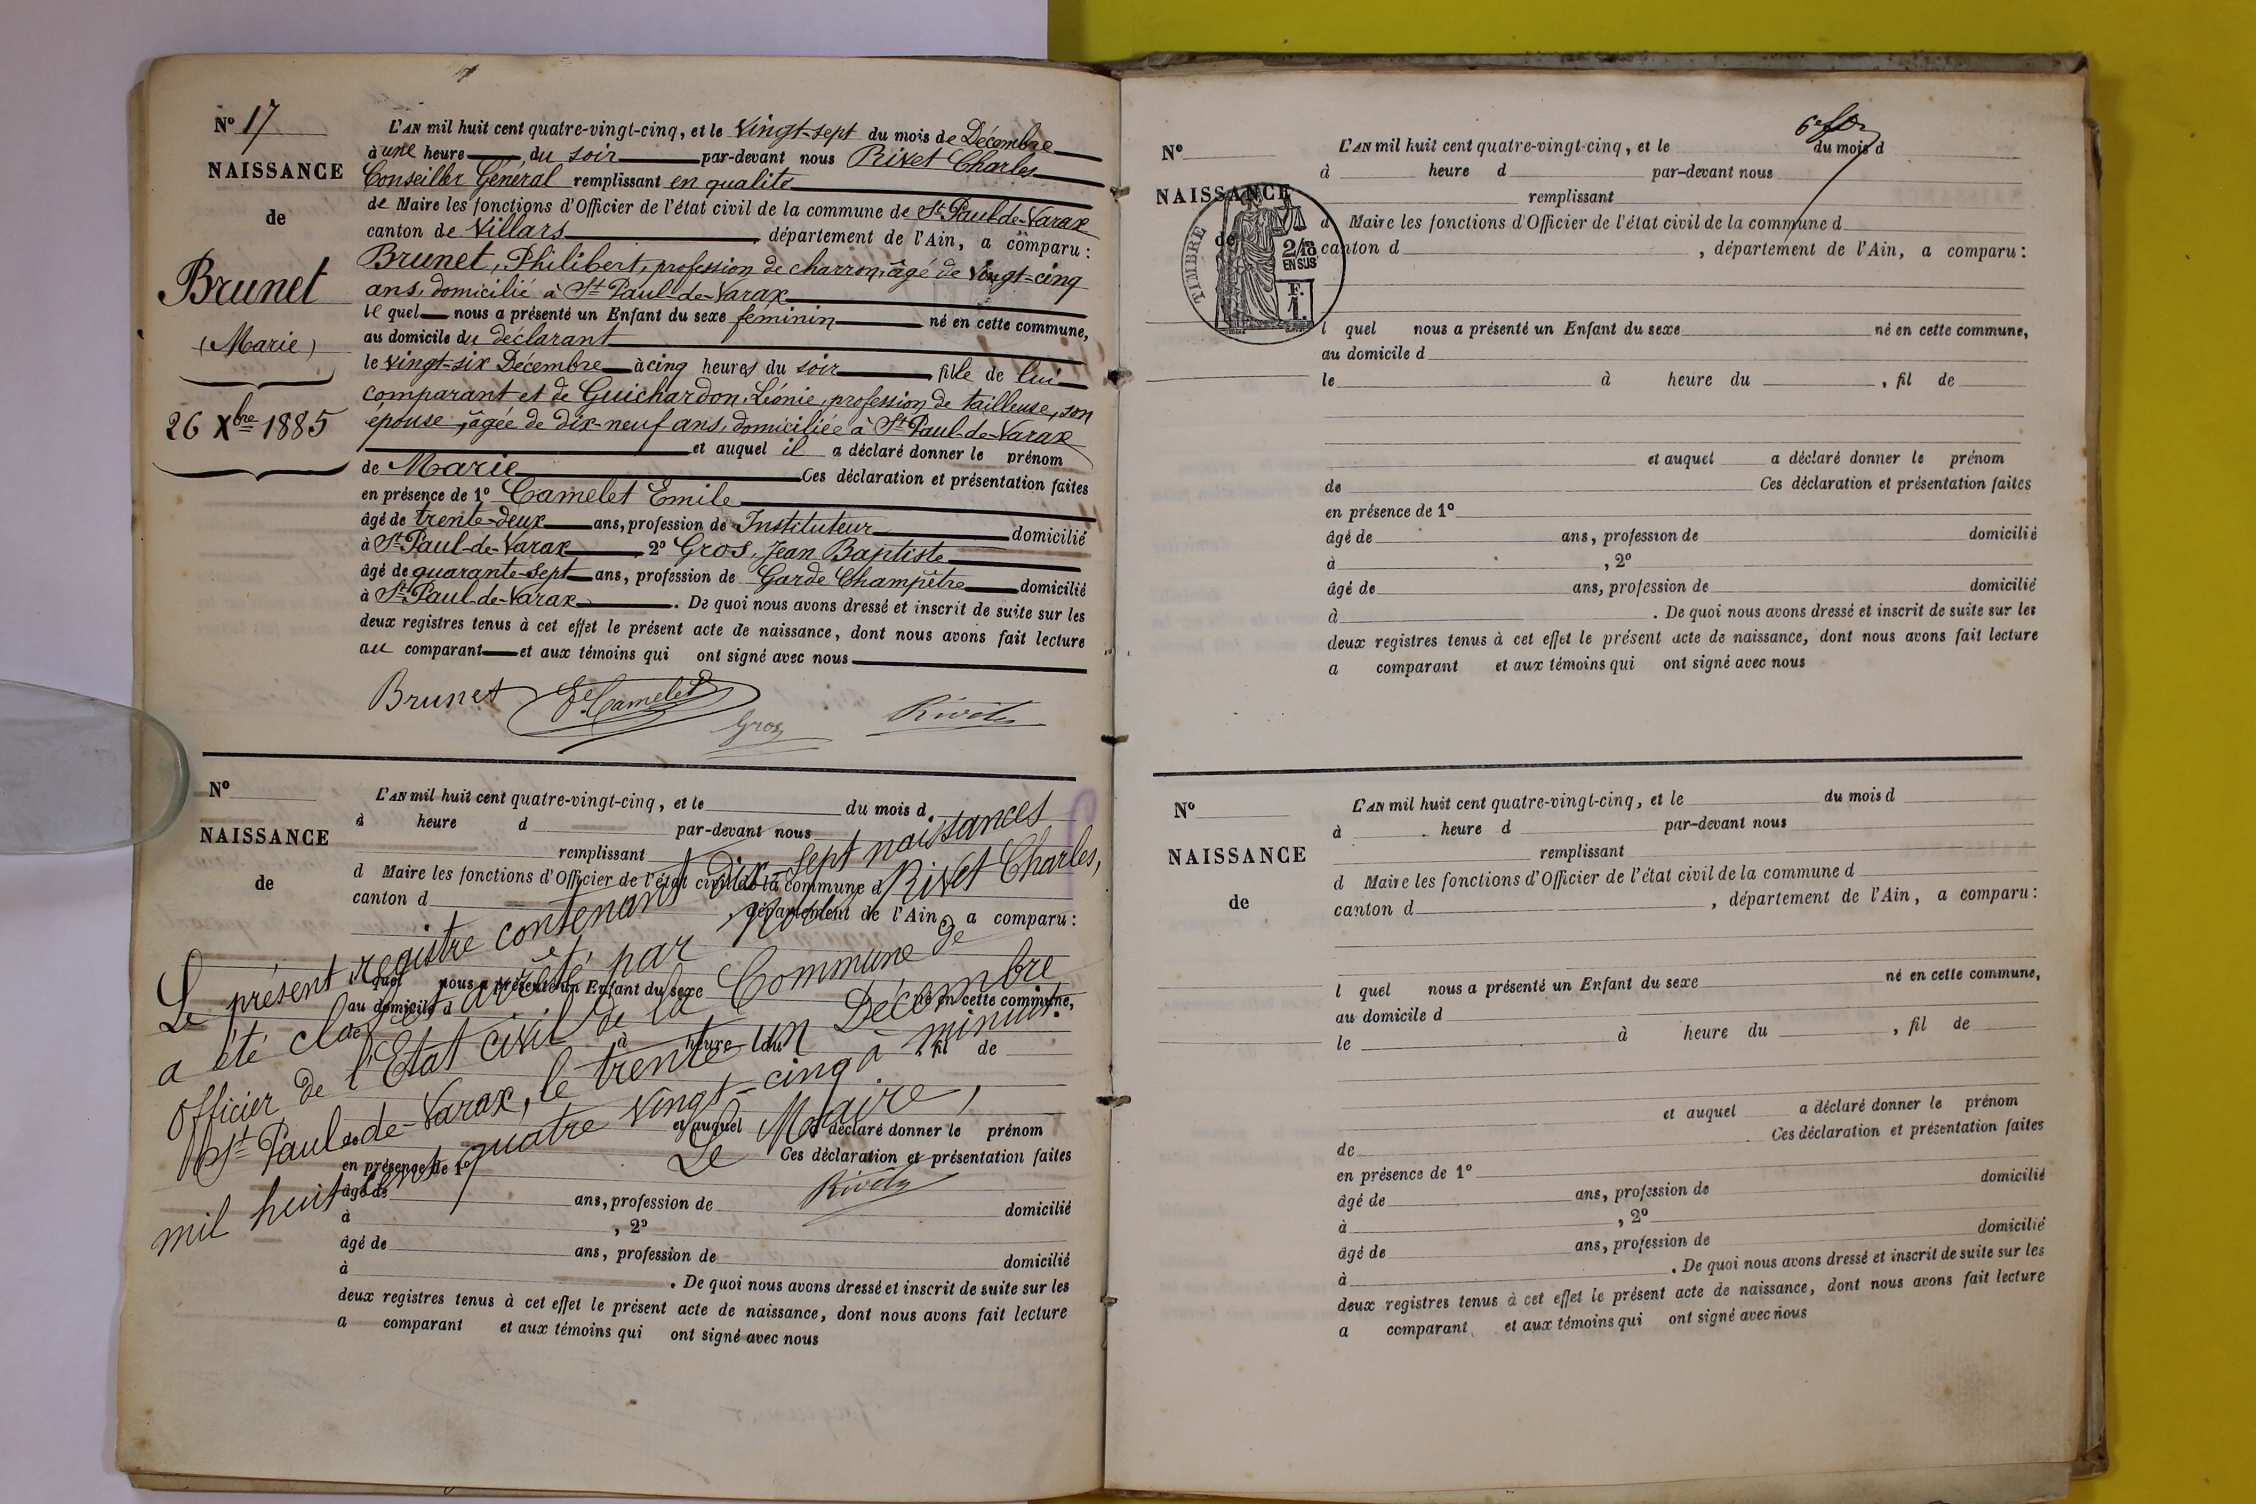 N° 17
NAISSANCE
de
Brunet
(Marie)
26 Xbre 1885
L'AN mil huit cent quatre-vingt-cinq, et le Vingt-sept du mois de Décembre
à une heure du soir par-devant nous Rivet Charles
Conseiller Général remplissant en qualité
de Maire les fonctions d'Officier de l'état civil de la commune de St Paul-de-Varax
canton de Villars, département de l'Ain, a comparu :
Brunet, Philibert, profession de charron, âgé de vingt-cinq
ans, domicilié à St Paul-de-Varax
le quel nous a présenté un Enfant du sexe féminin né en cette commune,
au domicile du déclarant
le vingt-six Décembre à cinq heures du soir, fille de lui
comparant et de Guichardon, Léonie, profession de tailleuse, son
épouse, âgée de dix-neuf ans, domiciliée à St Paul-de-Varax
et auquel il a déclaré donner le prénom
de Marie Ces déclaration et présentation faites
en présence de 1° Camelet Emile
âgé de trente-deux ans, profession de Instituteur domicilié
à St Paul-de-Varax, 2° Gros, Jean Baptiste
âgé de quarante-sept ans, profession de Garde Champêtre domicilié
à St Paul-de-Varax. De quoi nous avons dressé et inscrit de suite sur les
deux registres tenus à cet effet le présent acte de naissance, dont nous avons fait lecture
au comparant et aux témoins qui ont signé avec nous
Brunet E. Camelet Gros Rivet
N°
NAISSANCE
de
L'AN mil huit cent quatre-vingt-cinq, et le du mois d
à heure d par-devant nous
remplissant
d Maire les fonctions d'Officier de l'état civil de la commune d
canton d , département de l'Ain, a comparu :
l quel nous a présenté un Enfant du sexe né en cette commune,
au domicile d
le à heure du , fil de
et auquel a déclaré donner le prénom
de Ces déclaration et présentation faites
en présence de 1°
âgé de ans, profession de domicilié
à , 2°
âgé de ans, profession de domicilié
à . De quoi nous avons dressé et inscrit de suite sur les
deux registres tenus à cet effet le présent acte de naissance, dont nous avons fait lecture
a comparant et aux témoins qui ont signé avec nous
Le présent registre contenant dix-sept naissances
a été clos et arrêté par Nous, Rivet Charles,
Officier de l'Etat civil de la Commune de
St Paul-de-Varax, le trente-un Décembre
mil huit cent quatre vingt-cinq à minuit.
Le Maire,
Rivet
N°
NAISSANCE
de
TIMBRE
2/10
EN SUS
F.
1.
L'AN mil huit cent quatre-vingt-cinq, et le du mois d
à heure d par-devant nous
remplissant
d Maire les fonctions d'Officier de l'état civil de la commune d
canton d , département de l'Ain, a comparu :
l quel nous a présenté un Enfant du sexe né en cette commune,
au domicile d
le à heure du , fil de
et auquel a déclaré donner le prénom
de Ces déclaration et présentation faites
en présence de 1°
âgé de ans, profession de domicilié
à , 2°
âgé de ans, profession de domicilié
à . De quoi nous avons dressé et inscrit de suite sur les
deux registres tenus à cet effet le présent acte de naissance, dont nous avons fait lecture
a comparant et aux témoins qui ont signé avec nous
N°
NAISSANCE
de
L'AN mil huit cent quatre-vingt-cinq, et le du mois d
à heure d par-devant nous
remplissant
d Maire les fonctions d'Officier de l'état civil de la commune d
canton d , département de l'Ain, a comparu :
l quel nous a présenté un Enfant du sexe né en cette commune,
au domicile d
le à heure du , fil de
et auquel a déclaré donner le prénom
de Ces déclaration et présentation faites
en présence de 1°
âgé de ans, profession de domicilié
à , 2°
âgé de ans, profession de domicilié
à . De quoi nous avons dressé et inscrit de suite sur les
deux registres tenus à cet effet le présent acte de naissance, dont nous avons fait lecture
a comparant et aux témoins qui ont signé avec nous